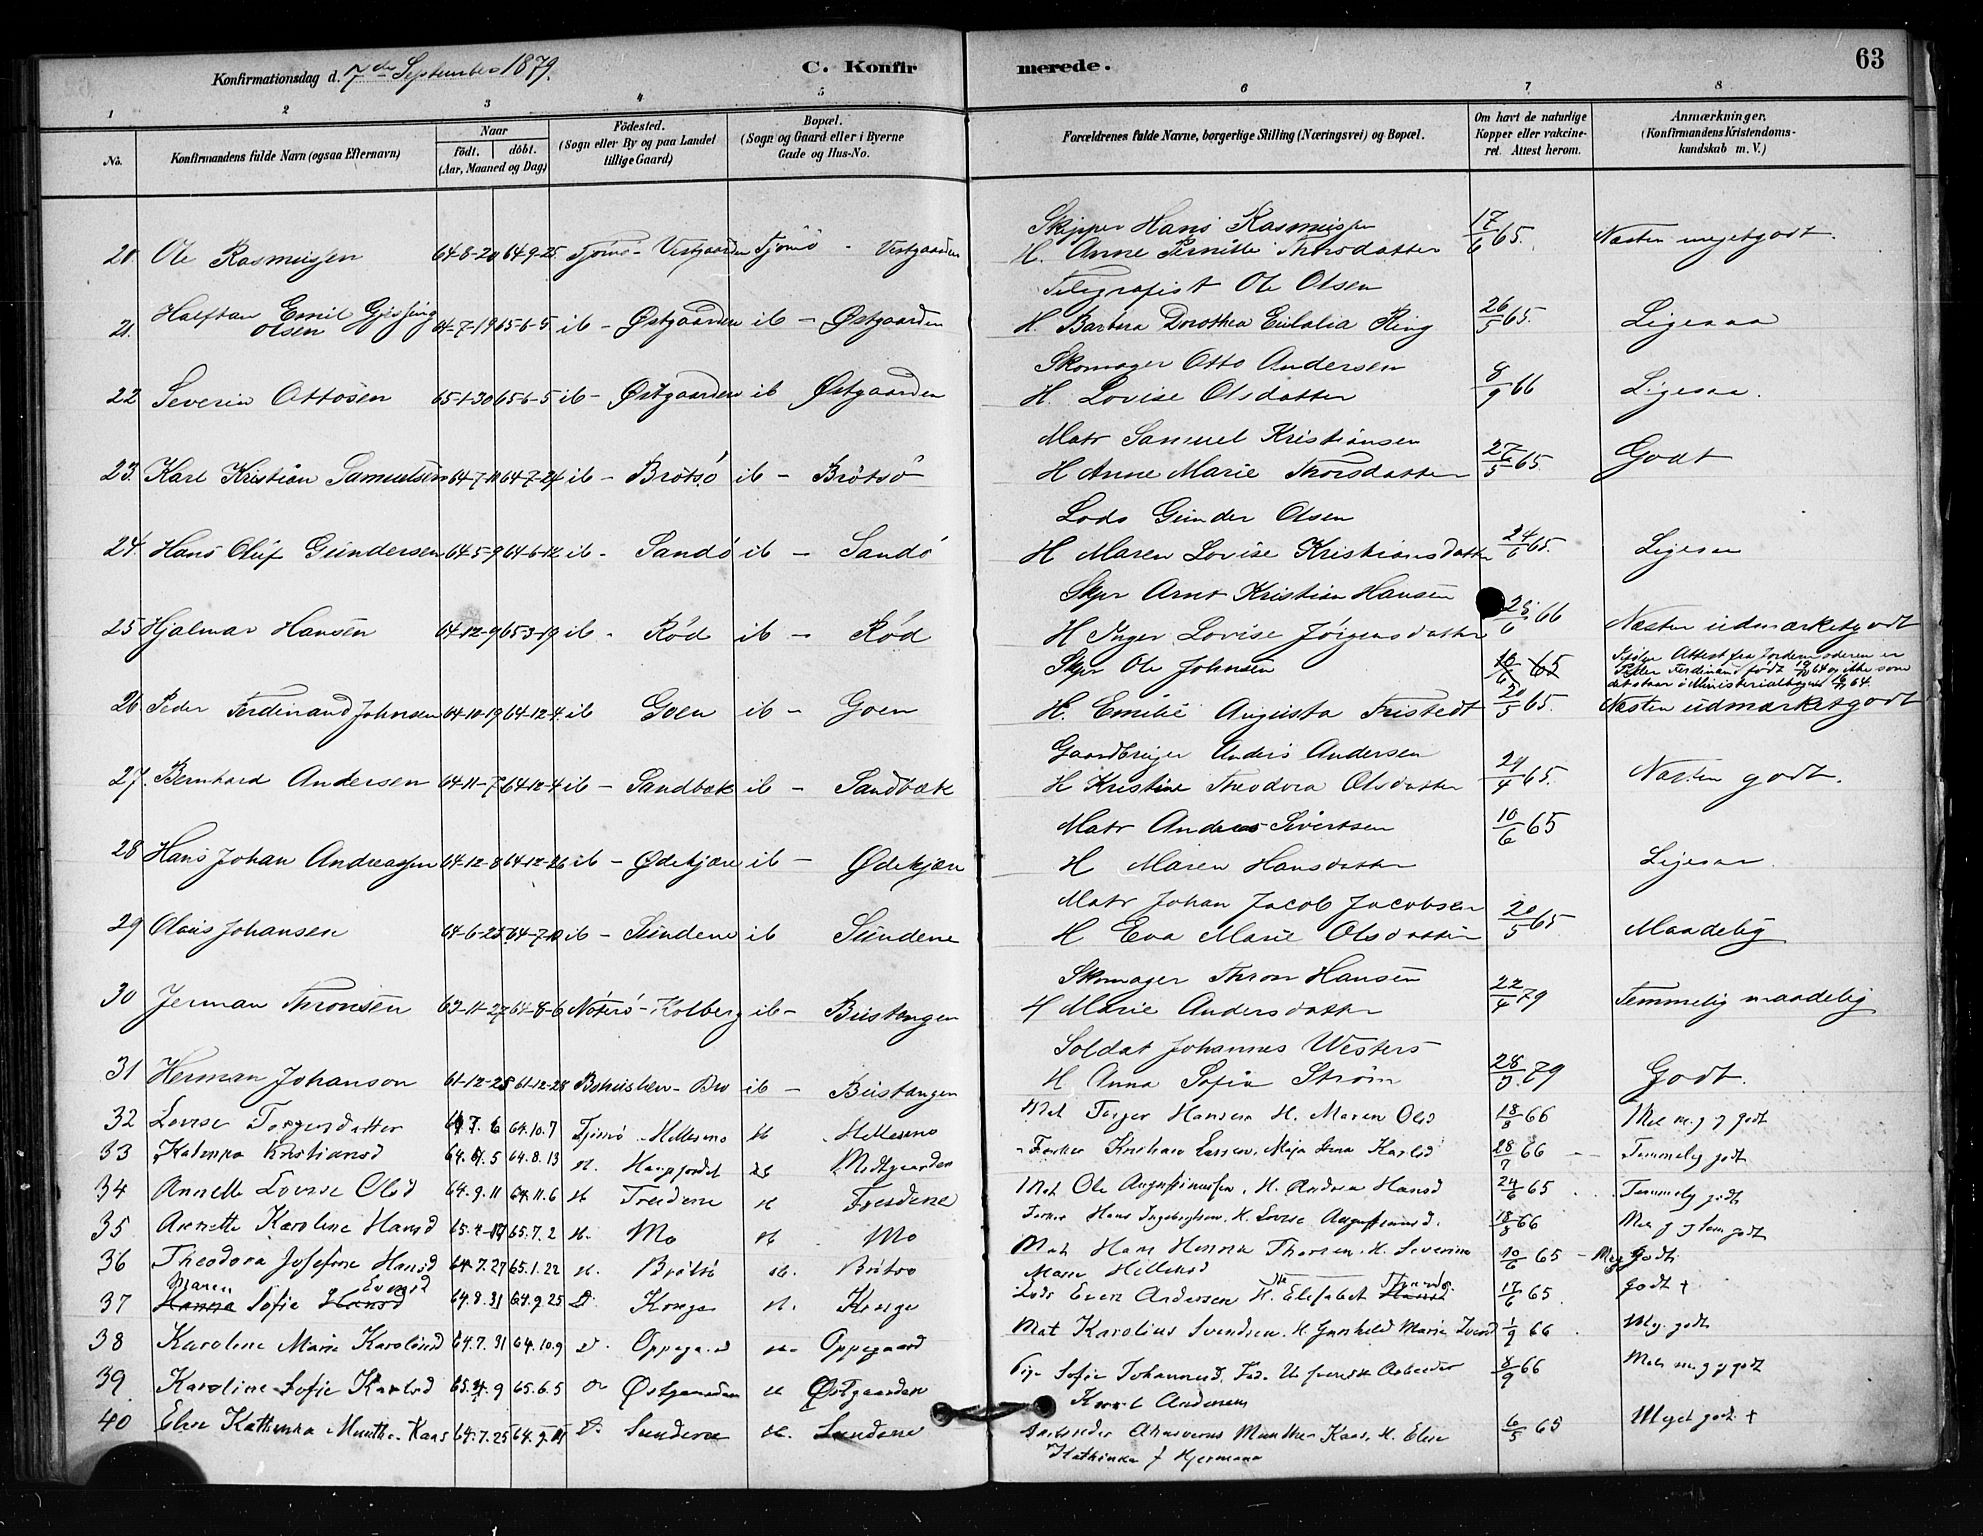 Konfirmationsdag d. 7de September 1879.
C. Konfirmerede.
63
1 2 3 4 5 6 7 8
No.
Konfirmandens fulde Navn (ogsaa Efternavn)
Naar
født. døbt.
(Aar, Maaned og Dag)
Fødested.
(Sogn eller By og paa Landet
tillige Gaard)
Bopæl.
(Sogn og Gaard eller i Byerne
Gade og Hus-No.
Forældrenes fulde Navne, borgerlige Stilling (Næringsvei) og Bopæl.
Om havt de naturlige
Kopper eller vakcine-
ret. Attest herom.
Anmærkninger.
(Konfirmandens Kristendoms-
kundskab m. V.)
Skipper Hans Rasmussen
20 Ole Rasmussen 64-8-20 64-9-25 Tjømø - Vestgaarden Tjømø - Vestgaarden H. Anne Pernille Thorsdatter 17/6 65. Næsten megetgodt.
Telegrafist Ole Olsen
21 Halftan Emil Gjessing Olsen 64-7-19 65-6-5 ib - Østgaarden ib - Østgaarden H. Barbara Dorothea Eulalia Ring 26/5 65. Ligesaa
Skomager Otto Andersen
22 Severin Ottosen 65-1-30 65-6-5 ib - Østgaarden ib Østgaarden H. Lovise Olsdatter 8/9 66 Ligesaa.
Matr Samuel Kristiansen
23. Karl Kristian Samuelsen 64-7-11 64-7-24 ib - Brøtsø ib - Brøtsø H Anne Marie Thorsdatter 27/5 65. Godt
Lods Gunder Olsen
24 Hans Oluf Gundersen 64-5-9 64-6-12 ib - Sandø ib - Sandø H Maren Lovise Kristiansdatter 24/6 65. Ligesaa
Skpr Arnt Kristian Hansen
25 Hjalmar Hansen 64-12-9 65-3-19 ib - Rød ib - Rød H Inger Lovise Jørgensdatter 25/6 66 Næsten udmærketgodt
Skpr Ole Johnsen 10/6 65 Ifølge Attest fra Jordemoderen er
Peder Ferdinand født 19/10 64 og ikke som
det staar i Ministerialbogen 64.
26 Peder Ferdinand Johnsen 64-10-19 64-12-4. ib Goen ib - Goen H. Emilie Augusta Fristedt 20/5 65. Næsten udmærketgodt
Gaardbruger Anders Andersen
27. Bernhard Andersen 64-11-7 64-12-4 ib - Sandbæk ib - Sandbæk H Kristine Theodora Olsdatter 29/4 65. Næsten godt.
Matr Andreas Sivertsen 10/6 65
28 Hans Johan Andreassen 64-12-8 64-12-26 ib - Ødekjære ib - Ødekjære H Maren Hansdatter Ligesaa
Matr Johan Jacob Jacobsen
29 Olaus Johansen 64-6-25 64-7-10 ib - Sundene ib Sundene H Eva Marie Olsdatter 20/5 65 Maadelig
Skomager Thron Hansen
30 Jerman Thronsen 63-11-27 64-8-6 Nøterø - Kolberg ib - Bustangen H Marie Andersdatter 22/4 79 Temmelig maadelig
Soldat Johannes Westers
31 Herman Johanson 61-12-25 61-12-28 Bohuslen - Bro ib - Bustangen H Anna Sofia Strøm 28/3 79 Godt.
32 Lovise Torgersdatter 64.7.6 64.10.7 Tjømø - Hellesmo Hellesmo Mat Torger Hansen H. Maren Olsd 18/8 66 godt
33 Katinka Kristiansd 64.5 64.8.13 Medgaarden 28/7 66 Temmelig godt
34 Annette Lovise Olsd 64.9.11 64.11.6 Treidene Treidene Mat Ole Augustinussen. H. Andrea Hansd 24/6 65 Temmelig godt
35 Annette Karoline Hansd 65.7.2 Mo Mo Hans Ingebrigtsen. H. Lovise Augustinusd. 18/8 66
36 Theodora Josefine Hansd 64.7.27 65.1.22 Brøtsø Brøtsø Mat Hans Henrik Thorsen. H. Severine
Marie Hellesd 10/6 65 Meg godt
37 Maren Hanna Sofie Evensd Hansd 64.8.31 64.9.25 Konge Konge Lods Even Andersen H. Elisabet Hansd 17/6 65 Godt +
38 Karoline Marie Karolinsd 64.7.31 64.10.9 Oppegaard Oppegaard Mat Karolius Svendsen. H. Gunhild Marie Iversd 1/9 66 Meg. godt
39 Karoline Sofie Karlsd 65.6.5 Østgaarden Østgaarden Pige Sofie Johannesd. Arbeider
Karl Andersen 8/9 66 godt
40 Elise Kathinka Munthe-Kaas 64.7.25 Sundene Sundene Ahasverus Munthe-Kaas. H. Elise
Kathinka f Hjermann 6/5 65 Meget godt. +